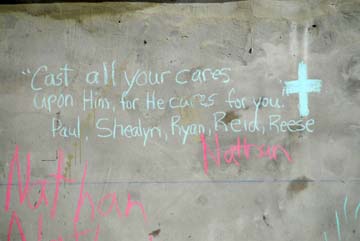 "Cast all your cares
upon Him, for He cares for you.
Paul, Shealyn, Ryan, Reid, Reese
Nathan
Nathan